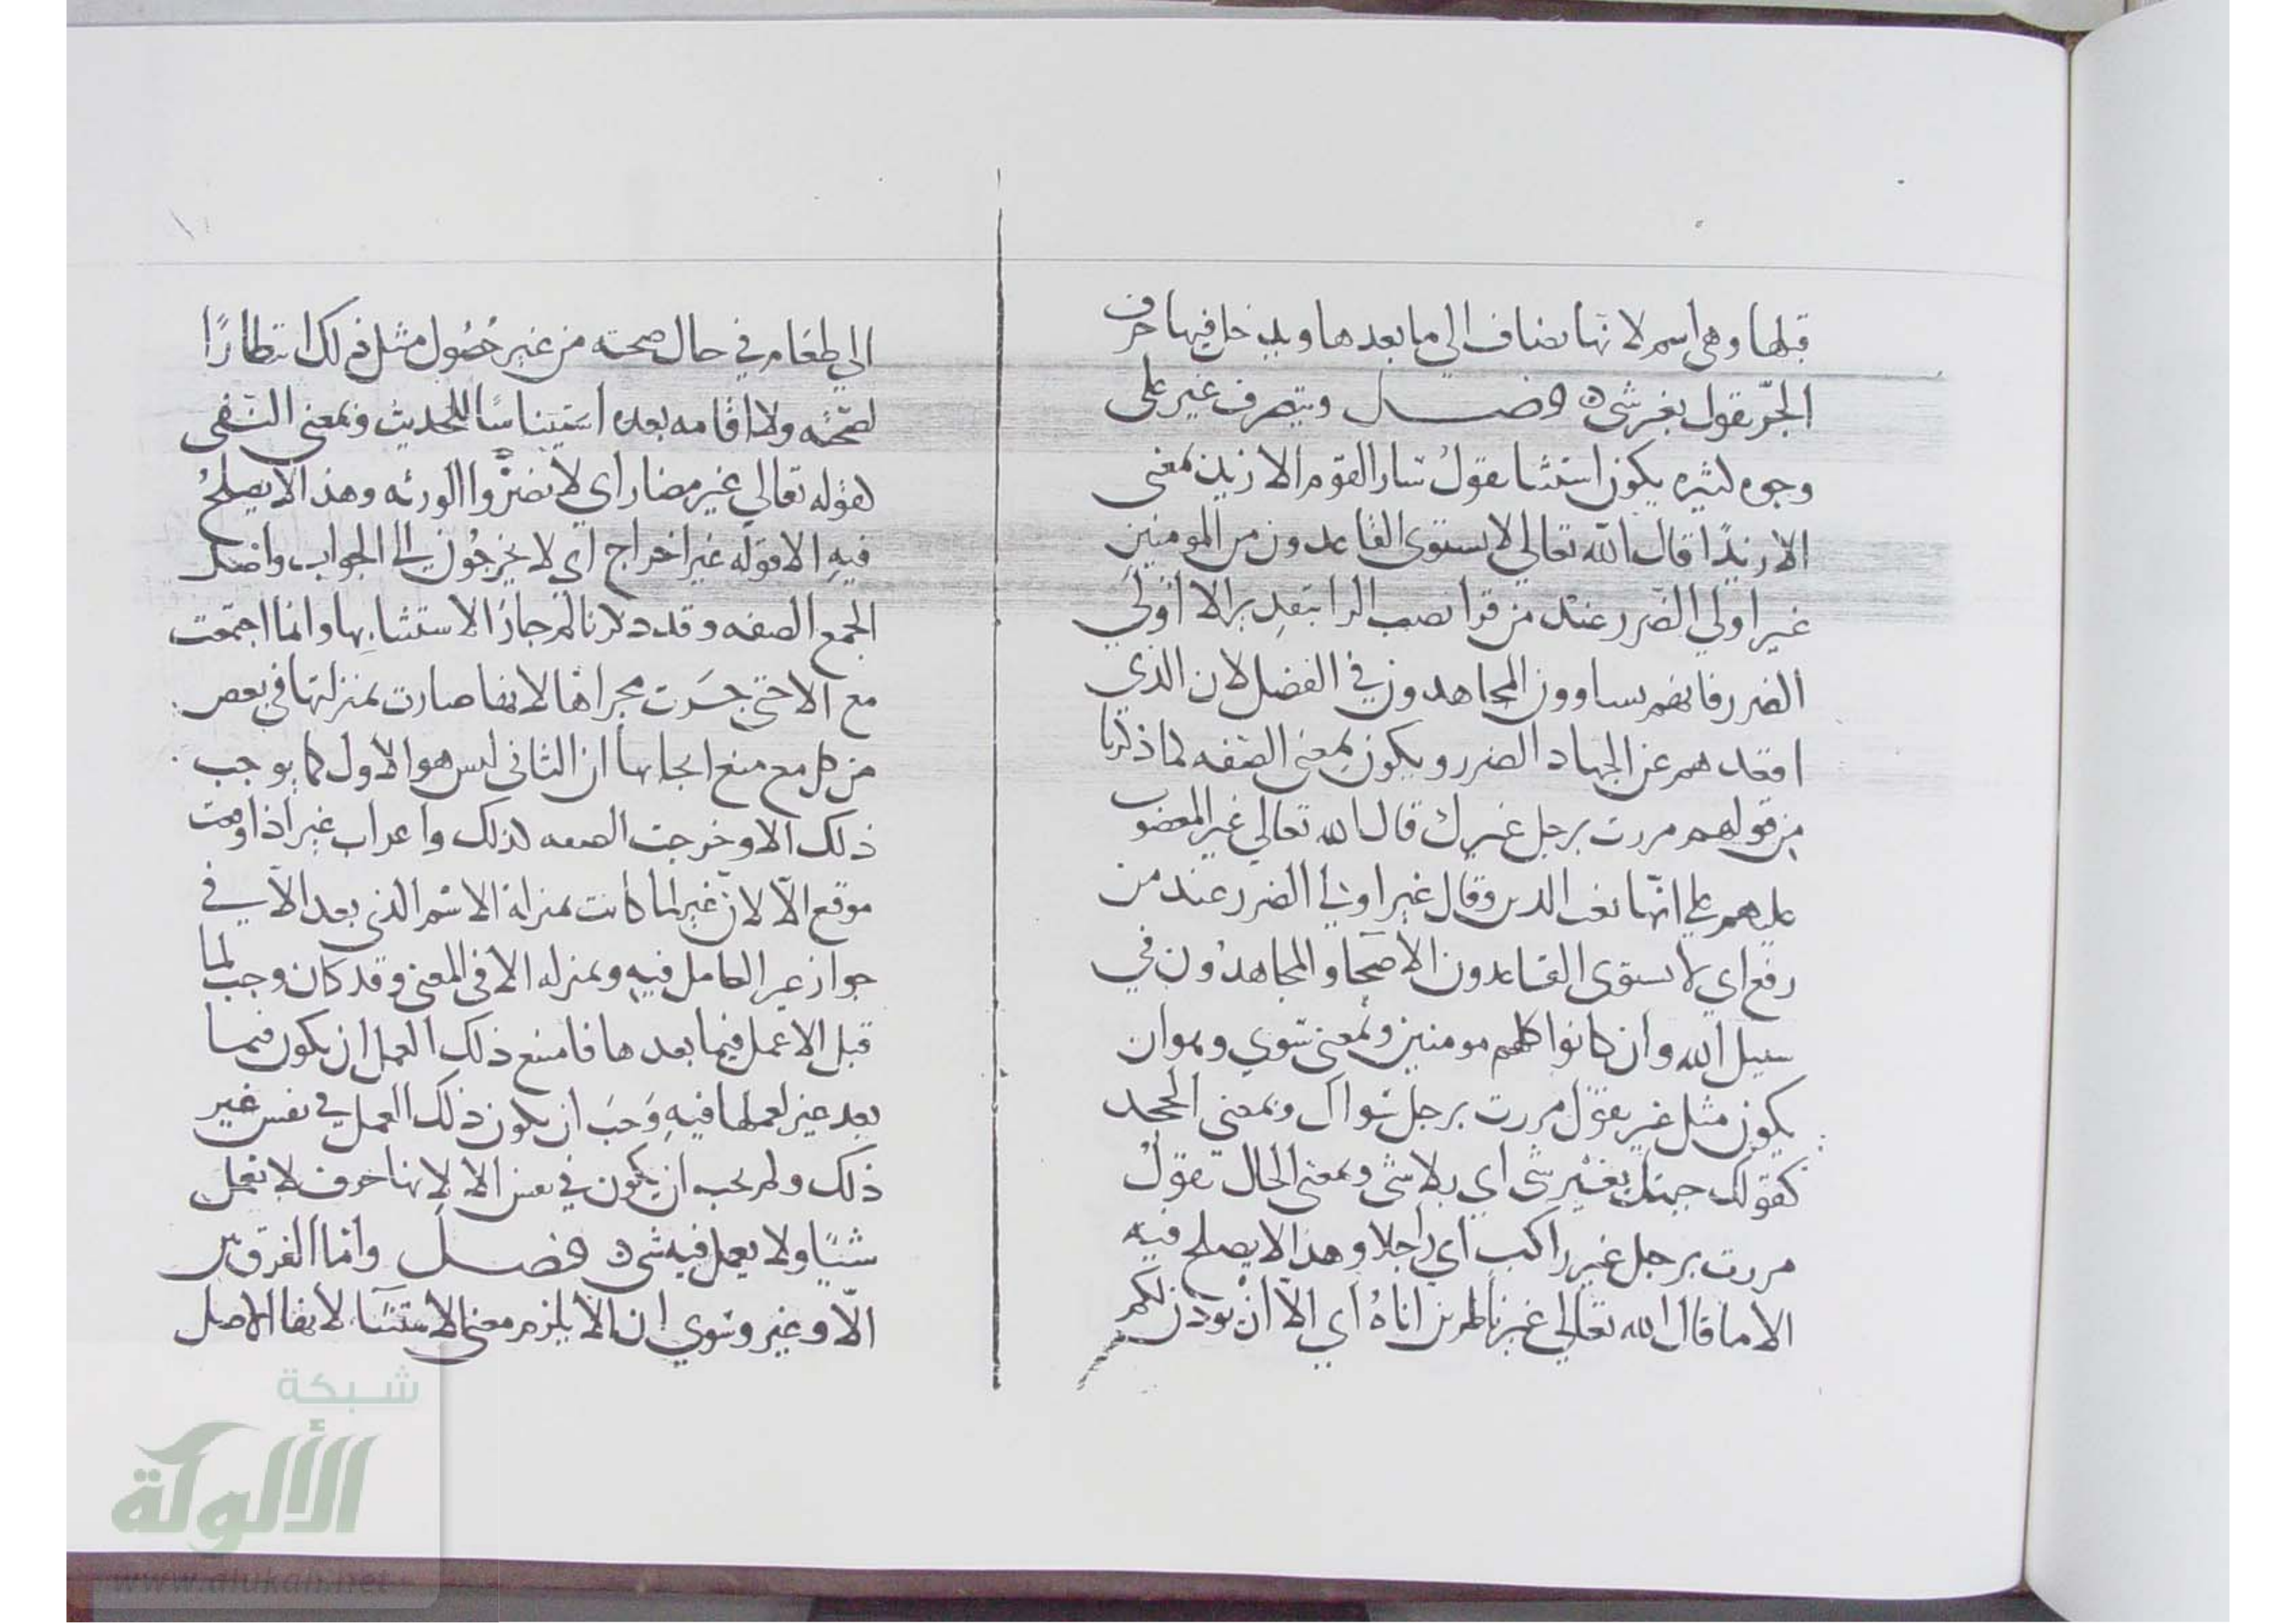 قبلها وهي اسم لانها تضاف الي ما بعدها ويدخل فيها حرف
الجرّ تقول بغير شي ه فصل ويتصرف غير على
وجوه كثيره يكون استثنا تقول سار القوم الا زيد بمعنى
الا زيدًا قال الله تعالي لا يستوى القاعدون من المومنين
غير اولي الضرر عند من قرا نصب الرا بتقدير الا اولي
الضرر فانهم يساوون المجاهدون في الفضل لان الذي
اقعدهم عن الجهاد الضرر ويكون بمعنى الصفه كما ذكرنا
من قولهم مررت برجل غيرك قال الله تعالي غير المغضوب
عليهم علي انها نعت الدين وقال غير اولي الضرر عند من
رفع اي لا يستوى القاعدون الاصحا والمجاهدون في
سبيل الله وان كانوا كلهم مومنين وبمعنى سوي وهو ان
يكون مثل غير تقول مررت برجل سواك وبمعنى الجحد
كقولك جيتك بغير شى اي بلا شى وبمعنى الحال تقول
مررت برجل غير راكب اي راجلا وهذا لا يصلح فيه
الا ما قال الله تعالي غير ناظرين اناه اي الا ان يوذن لكم
الي طعام في حال صحته من غير حُصُول مثل ذلك انتظارًا
لصحته ولا اقامه بعده استيناسًا للحديث وبمعنى النفى
كقوله تعالي غير مضار اي لا تضرّوا الورثه وهذا لا يصلحُ
فيه الا قوله غير اخراج اي لا يخرجُون الي الجواب واصل
الجمع الصفه وقد ذكرنا لم جازَ الاستثنا بها وانما اجتمعت
مع الا حتى جَرَت مجراها لانها صارت بمنزلتها في بعض
من كل مع منع ايجابها ان الثانى ليس هو الاول كما يوجب
ذلك الا وخرجت الصفه لذلك واعراب غير اذا وقعت
موقع الاّ لانّ غير لما كانت بمنزلة الاسْم الذى بعد الاّ في
جواز عير العامل فيه وبمنزله الا فى المعنى وقد كان وجب لما
قبل الا عمل فيما بعدها فامتنع ذلك العمل ان يكون فيما
بعد غير لعملها فيه وَجَبَ ان يكون ذلك العمل في نفس غير
ذلك ولم يجب ان يكون في نفس الا لانها حرف لا تعمل
شيئًا ولا يعمل فيه شى ه فصل واما الفرق بين
الاّ وغير وسوي ان الاّ يلزم معنى الاستثنا لانها الاصل
شبكة
الألوكة
www.alukah.net